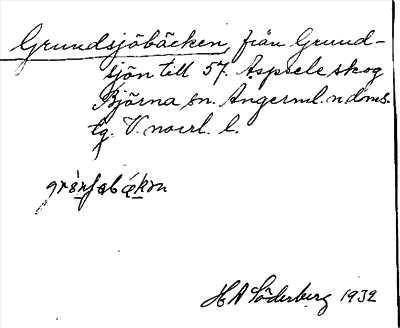 Grundsjöbäcken, från Grund-
sjön till 57. Aspsele skog
Björna sn. Ångerml. n doms.
tg. V. norrl. l.
H A Söderberg 1932